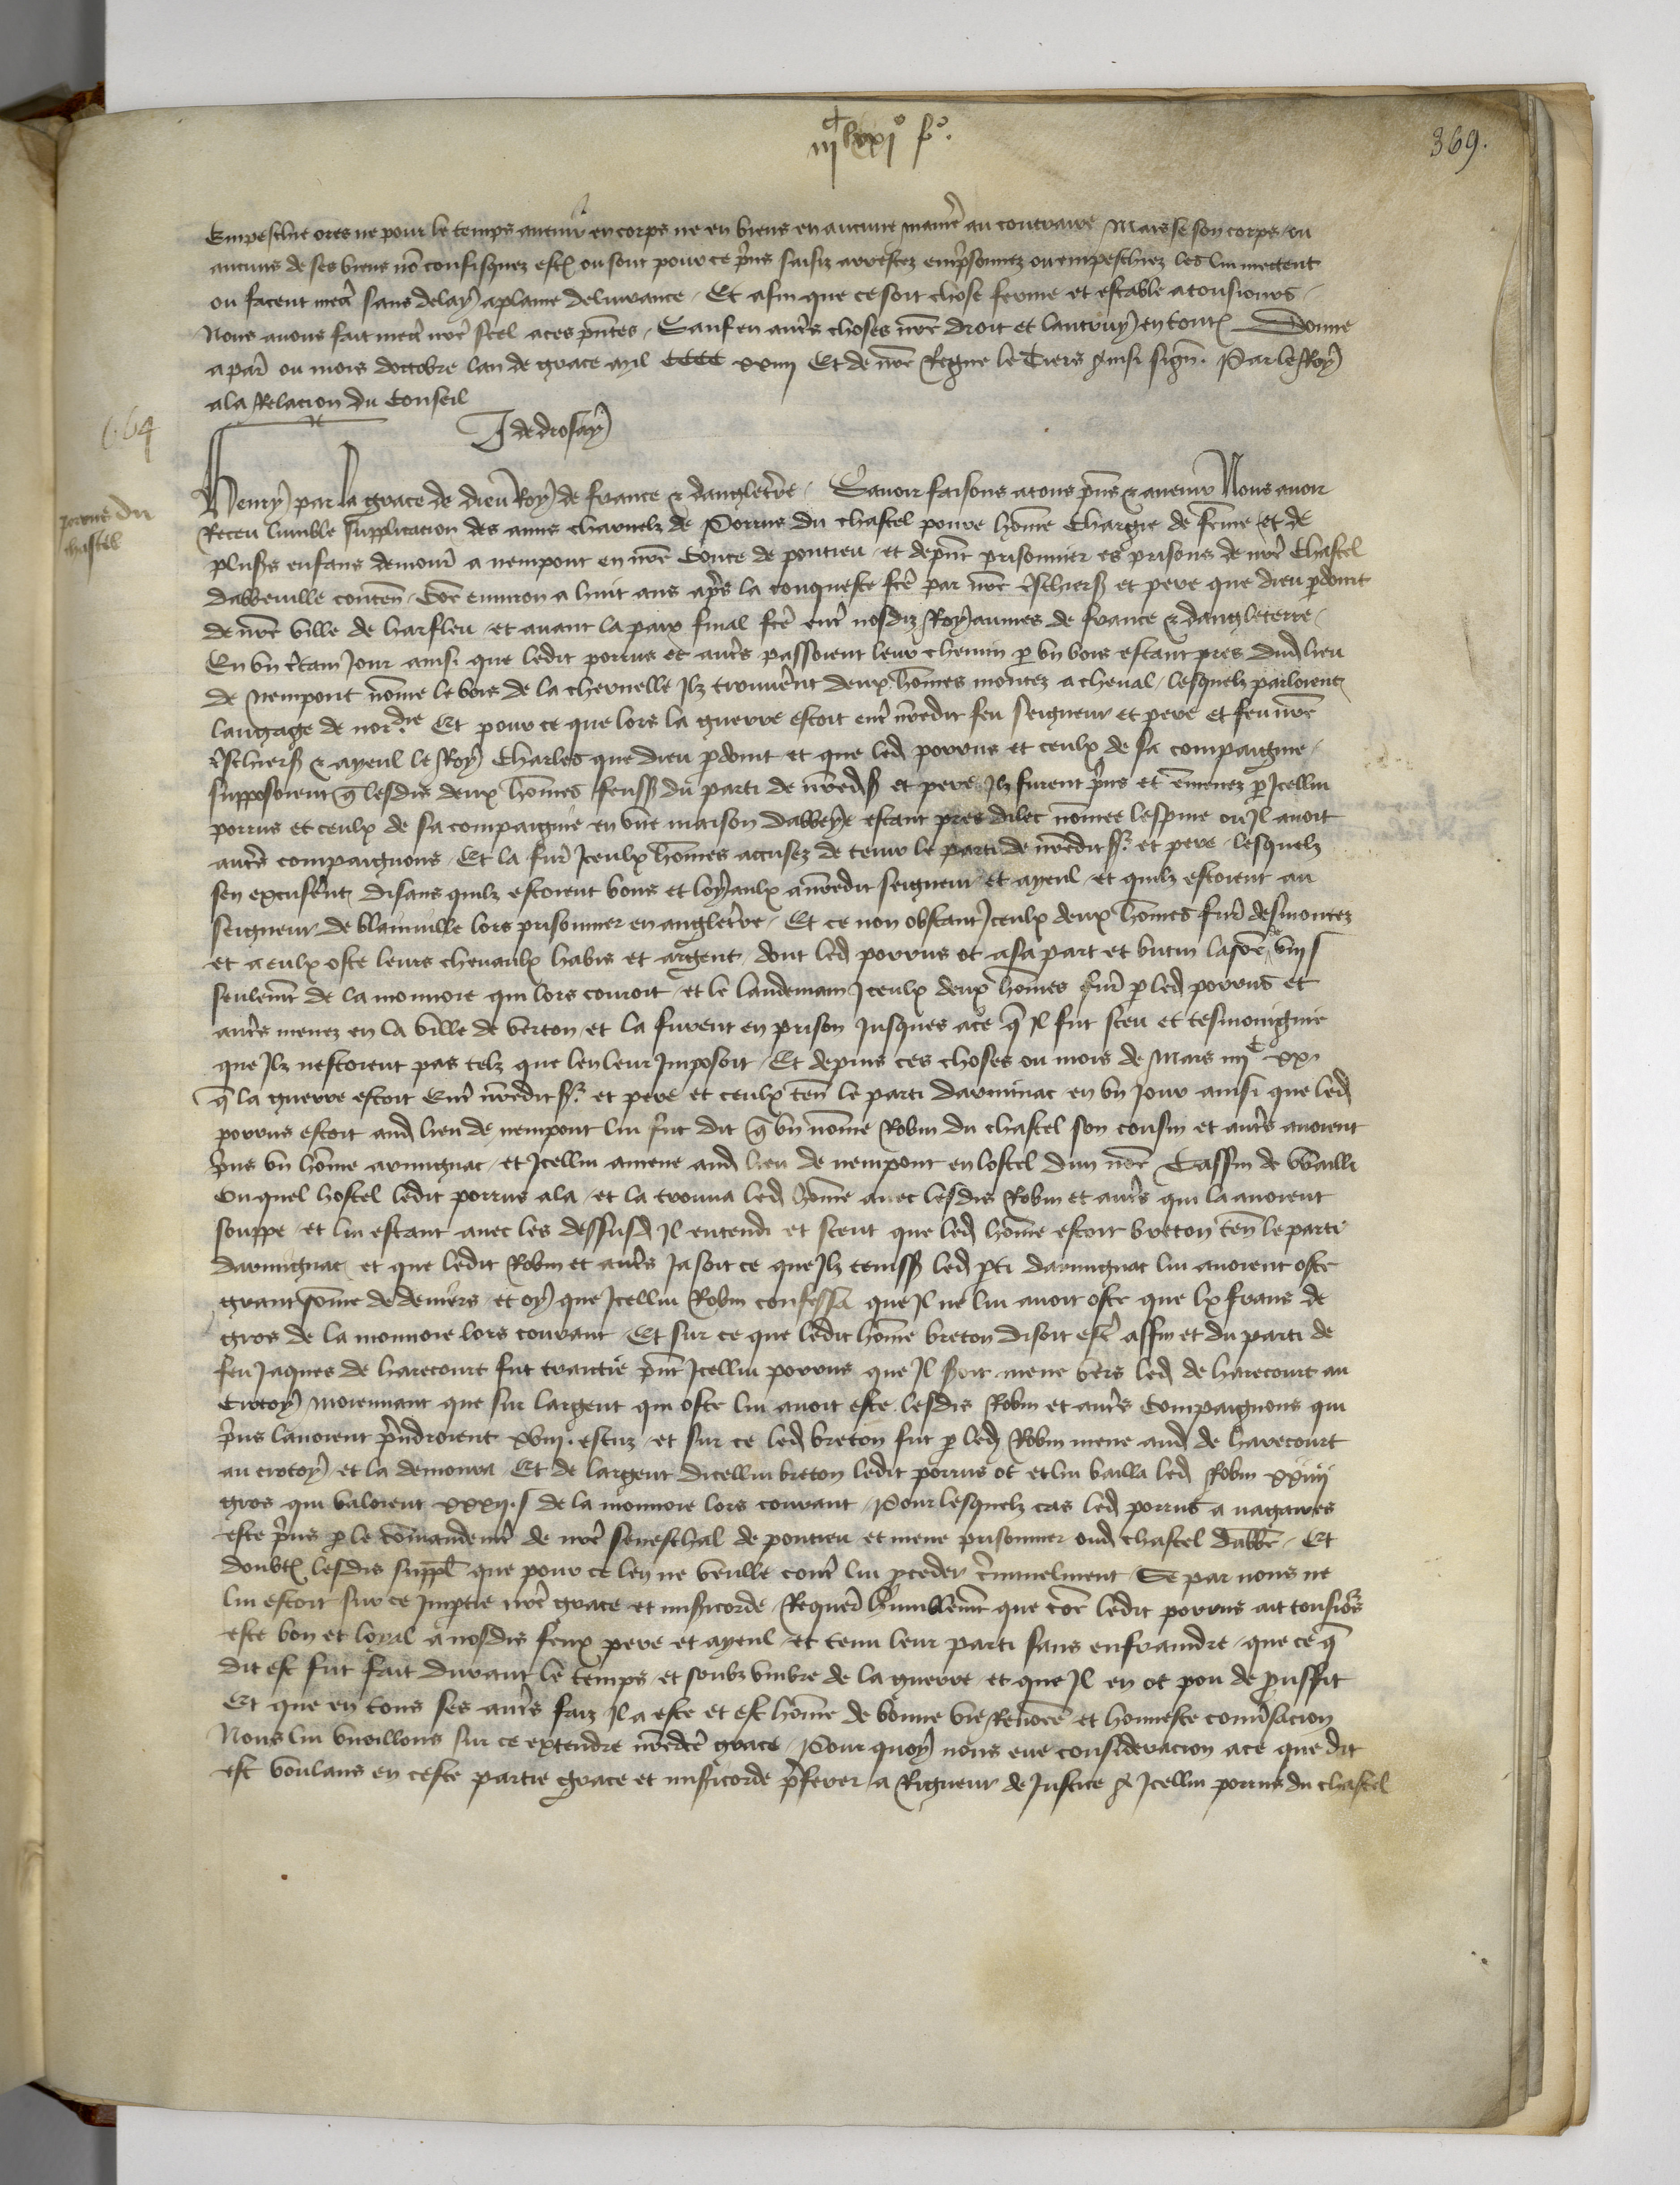 iii^c lxxi^o f^o.
369.
Empeschie ores ne pour le temps avenir en corps ne en biens en aucune manie au contraire Mais se son corps ou
aucuns de ses biens no confisquez est ou sont pour ce pris saisiz arrestez emprisonnez ou empeschiez les lui mettent
ou facent mect sans delay aplaine delivrance Et afin que ce soit chose ferme et estable atousiours
Nous avons fait mect nre scel aces pntes Sauf en autres choses nre droit et lautruy en tout Donne
a par ou mois doctobre lan de grace mil CCCC xxiiij Et de nre Regne le Tiers Ainsi sign. Par le Roy
ala Relacion du Conseil
J de drosay
664
porrus du
chastel
Henry par la grace de dieu Roy de france & dangleterre Savoir faisons atous pns & avenir Nous avoir
Receu lumble supplicacion des amis charnelz de Porrus du chastel povre home Chargie de feme et de
plusrs enfans demour a nempont en nre Conte de pontieu et depnt prisonnier es prisons de nre Chastel
dabbeville conten Coe environ a huit ans aprs la conqueste fce par nre treschier s et pere que dieu pdoint
de nre ville de harfleu et avant la paix final fce entr nosdiz Royaumes de france & dangleterre
En un certain Jour ainsi que ledit porrus et autrs passoient leur chemin p un bois estant pres dud lieu
de Nempont nome le bois de la chernelle Ilz trouverent deux homes montez a cheval lesquelz parloient
langage de nor.die Et pour ce que lors la guerre estoit entr nredit feu seigneur et pere et feu nre
treschier s & ayeul le Roy Charles que dieu pdoint et que led porrus et ceulx de sa compaignie
supposoient q lesdis deux homes feuss du parti de nred s et pere Ilz furent pris et emenez p Icellui
porrus et ceulx de sa compaignie en une maison dabbeye estant pres dilec nomee lespine ou Il avoit
autrs compaignons Et la fur Iceulx homes accusez de tenir le parti de nredit s. et pere lesquelz
sen excuserent disans quilz estoient bons et loyaulx a nredit seigneur et ayeul et quilz estoient au
seigneur de blainville lors prisonnier en angleterre Et ce non obstant Iceulx deux homes fur desmontez
et a eulx oste leurs chevaulx habis et argent dont led porrus ot asa part et butin la soe de viij s
seulemt de la monnoie qui lors couroit et le landemain Iceulx deux homes fur p led porrus et
autrs menez en la ville de verton et la furent en prison Jusques ace q Il fut sceu et tesmoingnie
que Ilz nestoient pas telz que len leur Imposoit Et depuis ces choses ou mois de Mars iiij^c xx
q la guerre estoit Entr nredit s. et pere et ceulx ten le parti darminac en un Jour ainsi que led
porrus estoit aud lieu de nempont lui fut dit q un nome Robin du chastel son cousin et autrs avoient
pris un home armignac et Icellui amene aud lieu de nempont en lostel dun noe Cassin de Wailli
Ou quel hostel ledit porrus ala et la trouva led home avec lesdis Robin et autrs qui la avoient
souppe et lui estant avec les dessusd Il entendi et sceut que led home estoit breton ten le parti
darmignac et que ledit Robin et autrs Ja soit ce que Ilz tenissent led pti darmignac lui avoient oste
grant some de deniers et oy que Icellui Robin confessa que Il ne lui avoit oste que lx frans de
gros de la monnoie lors courant Et sur ce que ledit home breton disoit estr affin et du parti de
feu Jaques de harecourt fut traittie pnt Icellui porrus que Il soit mene vers led de harecourt au
Crotoy Moiennant que sur largent qui oste lui avoit este lesdis Robin et autrs compaignons qui
pris lavoient prndroient xviij. escuz et sur ce led breton fut p led Robin mene aud de harecourt
au crotoy et la demoura Et de largent dicellui breton ledit porrus ot et lui bailla led Robin xxiiij
gros qui valoient xxxij. s de la monnoie lors courant Pour lesquelz cas led porrus a nagaires
este pris p le comandemt de nre seneschal de pontieu et mene prisonnier oud chastel dabbe Et
doubt lesdis suppl que pour ce len ne veulle contr lui proceder criminelment Se par nous ne
lui estoit sur ce Imptie nre grace et misericorde Requer humblemt que coe ledit porrus ait tousiours
este bon et loyal a nosdis feux pere et ayeul et tenu leur parti sans enfraindre que ce q
dit est fut fait durant le temps et soubz umbre de la guerre et que Il en ot pou de prouffit
Et que en tous ses autrs faiz Il a este et est home de bonne vie Renomee et honneste conversacion
Nous lui vueillons sur ce extendre nredce grace Pour quoy nous eue consideracion ace que dit
est voulans en ceste partie grace et misericorde preferer a Rigueur de Justice A Icellui porrus du chastel